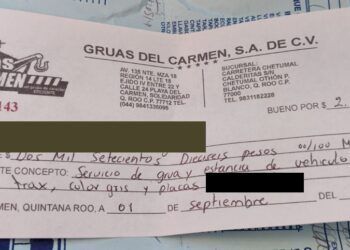 GRUAS DEL CARMEN, S.A. DE C.V.
AV. 135 NTE. MZA 18
REGIÓN 14 LTE 18
EJIDAL Y INT 01
CALLE 24 PLAYA DEL
CARMEN, SOLIDARIDAD
Q. ROO C.P. 77712
(044) 9841336095
SUCURSAL:
CARRETERA CHETUMAL
CALDERITAS S/N
CHETUMAL OTHÓN P.
BLANCO,
Q. ROO C.P. 77000
TEL. 9831182228
143
BUENO POR $ 2.
Dos Mil Setecientos Dieciseis pesos 00/100 M
TE CONCEPTO: Servicio de grua y estancia de vehiculo
trax, color gris y placas
MEN, QUINTANA ROO, A 01 de septiembre